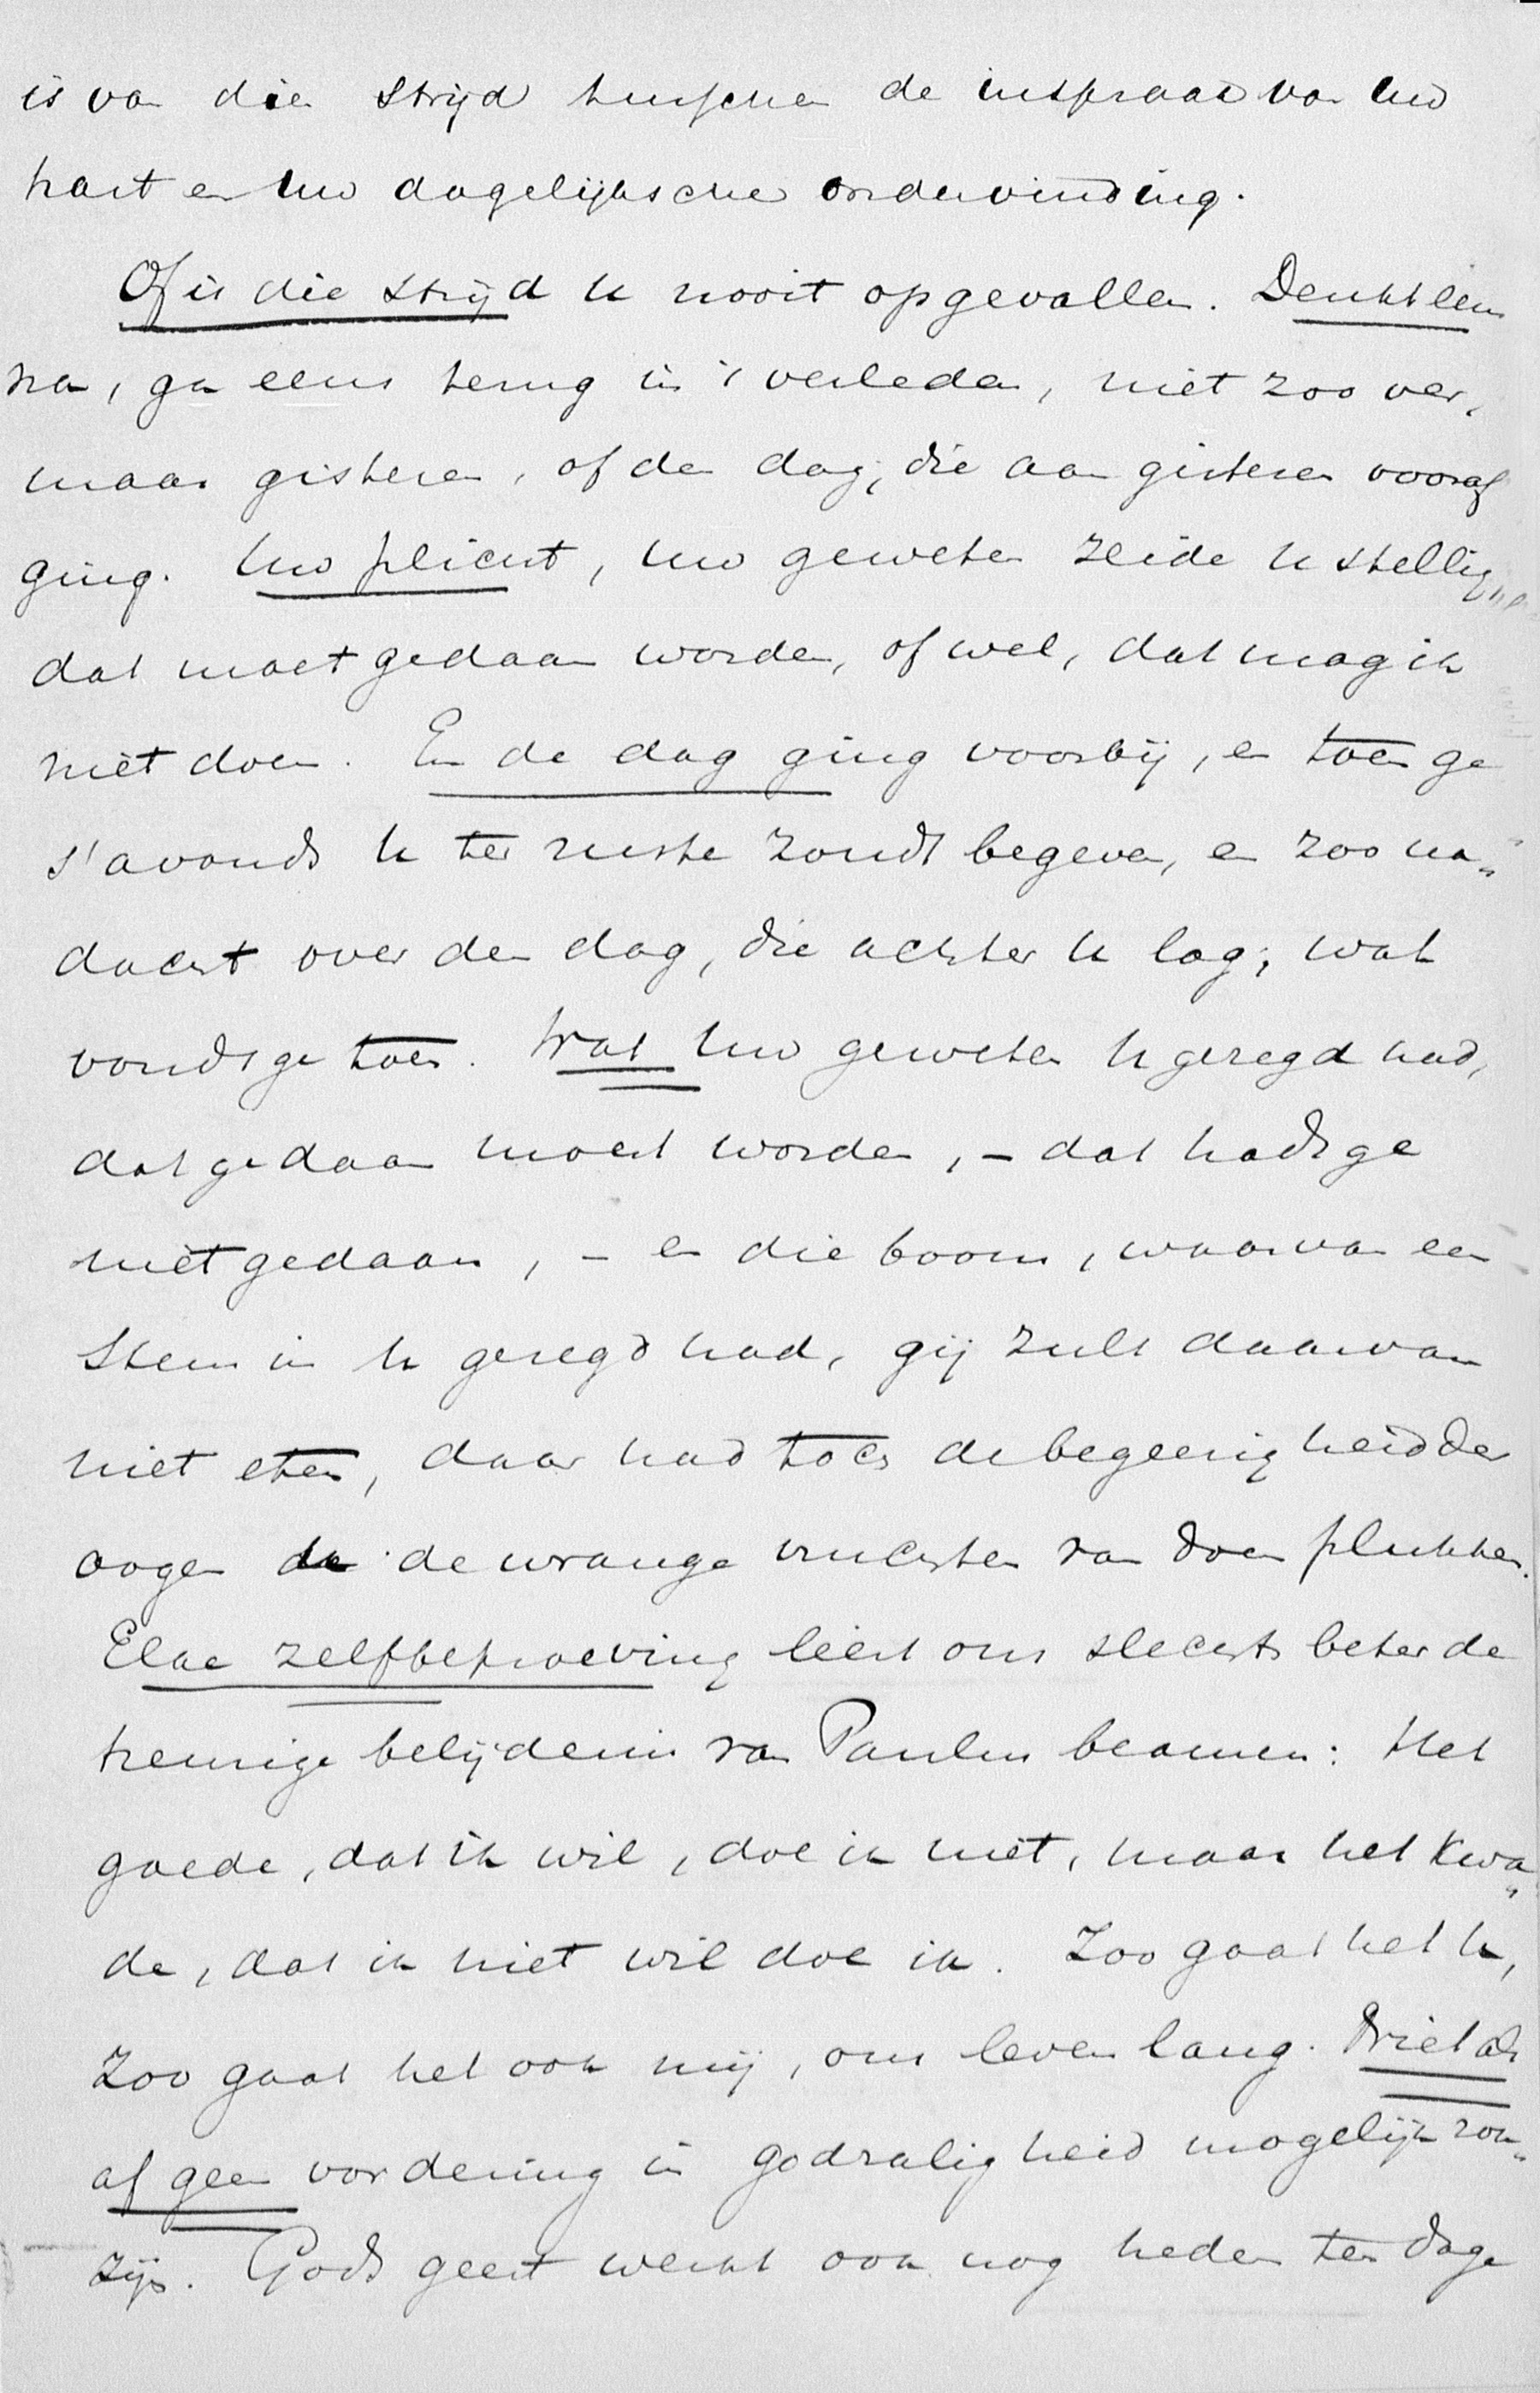 is van dien strijd tusschen de inspraak van Uw
hart en Uw dagelijksche ondervinding.
Of is die strijd U nooit opgevallen. Denkt eens
na, ga eens terug in 't verleden, niet zoo ver,
maar gisteren, of den dag, die aan gisteren vooraf
ging. Uw plicht, Uw geweten zeide U stellig,
dat moet gedaan worden, of wel, dat mag ik
niet doen. En de dag ging voorbij, en toen ge
s'avonds U ter ruste zoudt begeven, en zoo na„
dacht over den dag, die achter U lag, wat
vondt ge toen. Wat Uw geweten U gezegd had,
dat gedaan moest worden, – dat hadt ge
niet gedaan, – en die boom, waarvan een
stem in U gezegd had, gij zult daarvan
niet eten, daar had toch de begeerigheid der
oogen de wrange vruchten van doen plukken.
Elke zelfbeproeving leert ons slechts beter de
treurige belijdenis van Paulus beamen: Het
goede, dat ik wil, doe ik niet, maar het kwa„
de, dat ik niet wil doe ik. Zoo gaat het U,
zoo gaat het ook mij, ons leven lang. Niet als
of geen vordering in godzaligheid mogelijk zou„
zijn. Gods geest werkt ook nog heden ten dage